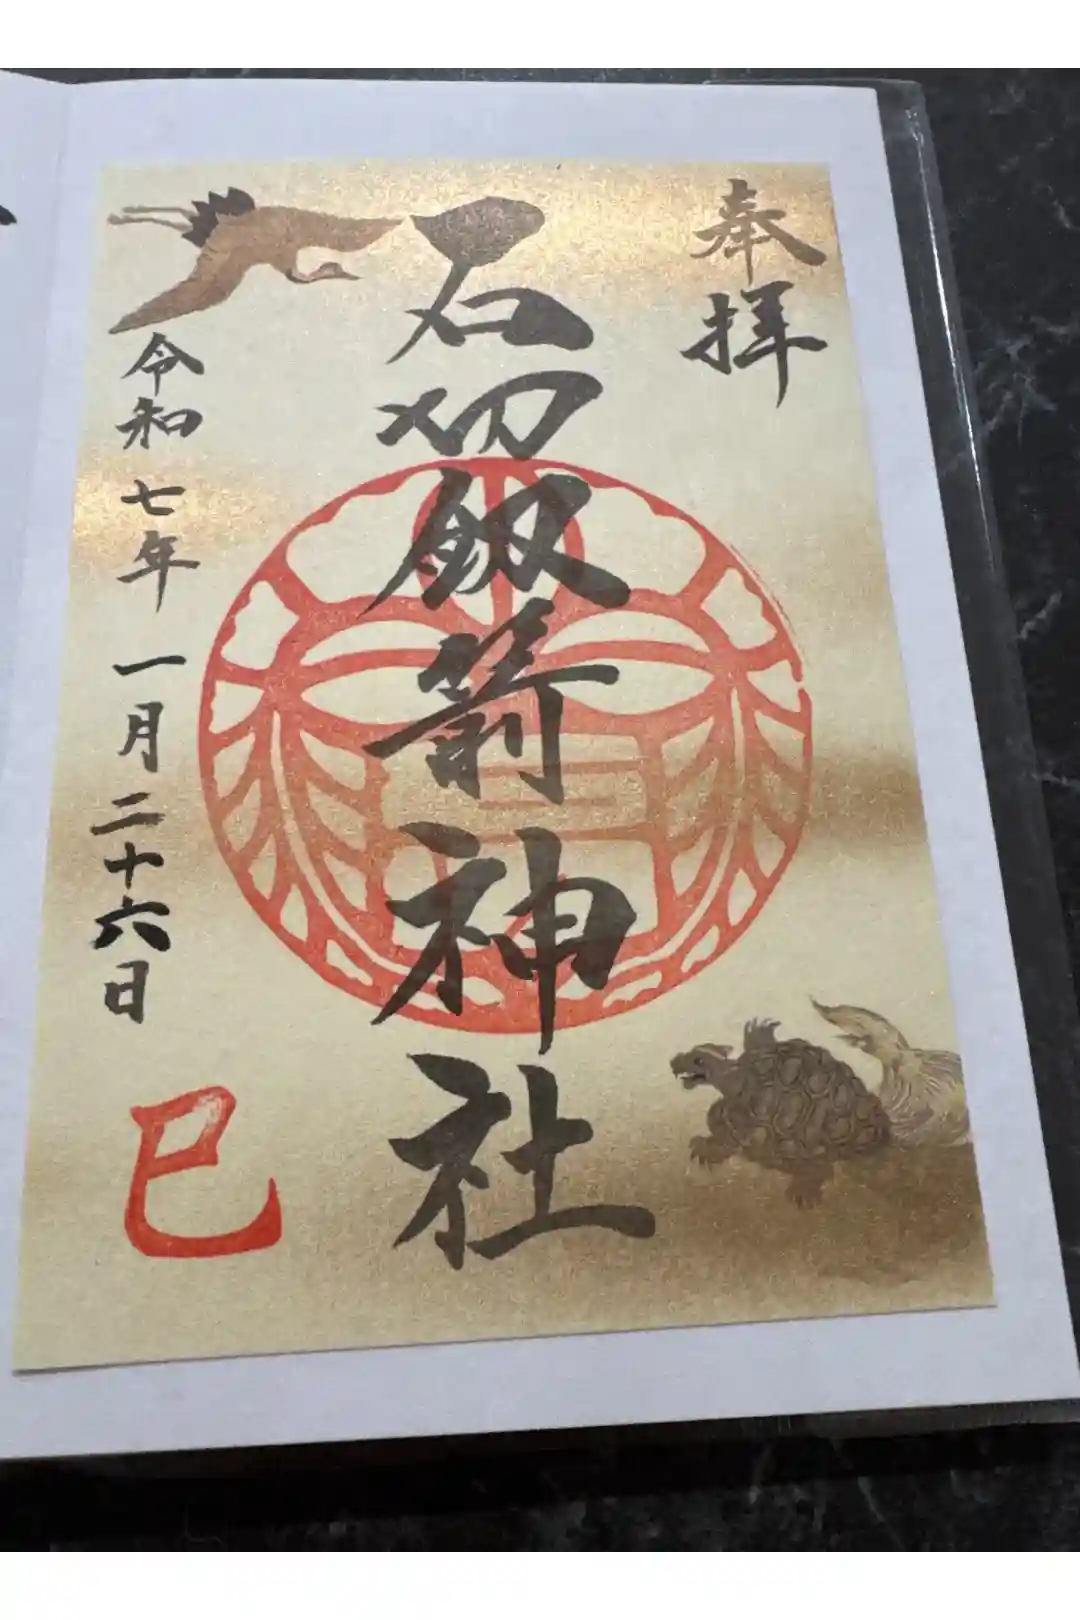 奉拝
石切剱箭神社
令和七年一月二十六日
巳